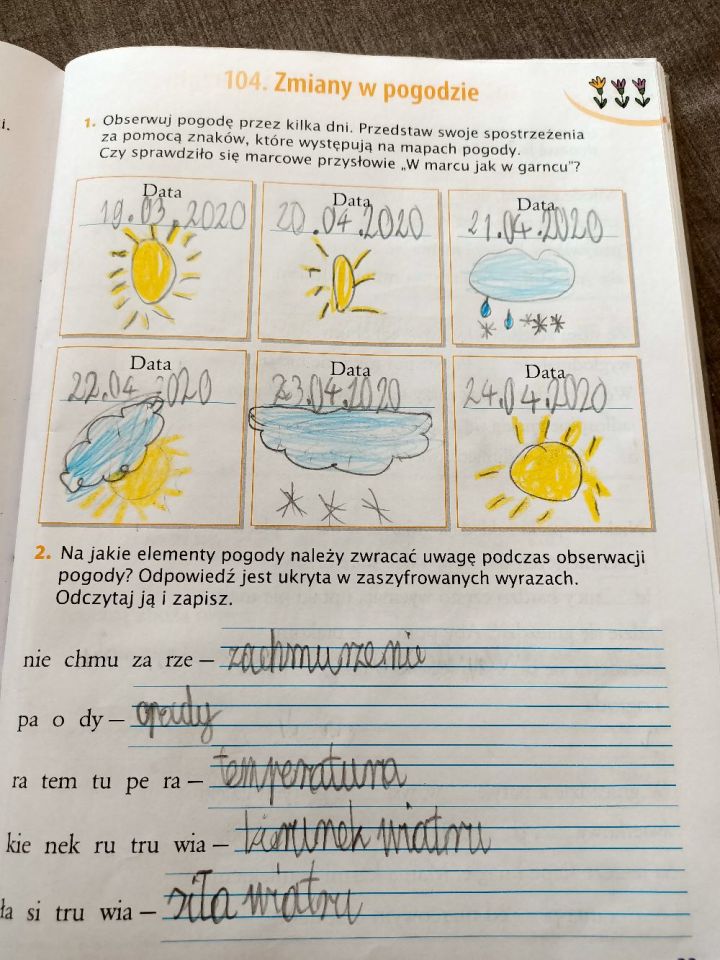 i.
104. Zmiany w pogodzie
1. Obserwuj pogodę przez kilka dni. Przedstaw swoje spostrzeżenia
za pomocą znaków, które występują na mapach pogody.
Czy sprawdziło się marcowe przysłowie „W marcu jak w garncu"?
Data Data Data
19.03.2020 20.04.2020 21.04.2020
Data Data Data
22.04.2020 23.04.2020 24.04.2020
2. Na jakie elementy pogody należy zwracać uwagę podczas obserwacji
pogody? Odpowiedź jest ukryta w zaszyfrowanych wyrazach.
Odczytaj ją i zapisz.
nie chmu za rze – zachmurzenie
pa o dy – opady
ra tem tu pe ra – temperatura
kie nek ru tru wia – kierunek wiatru
ła si tru wia – siła wiatru